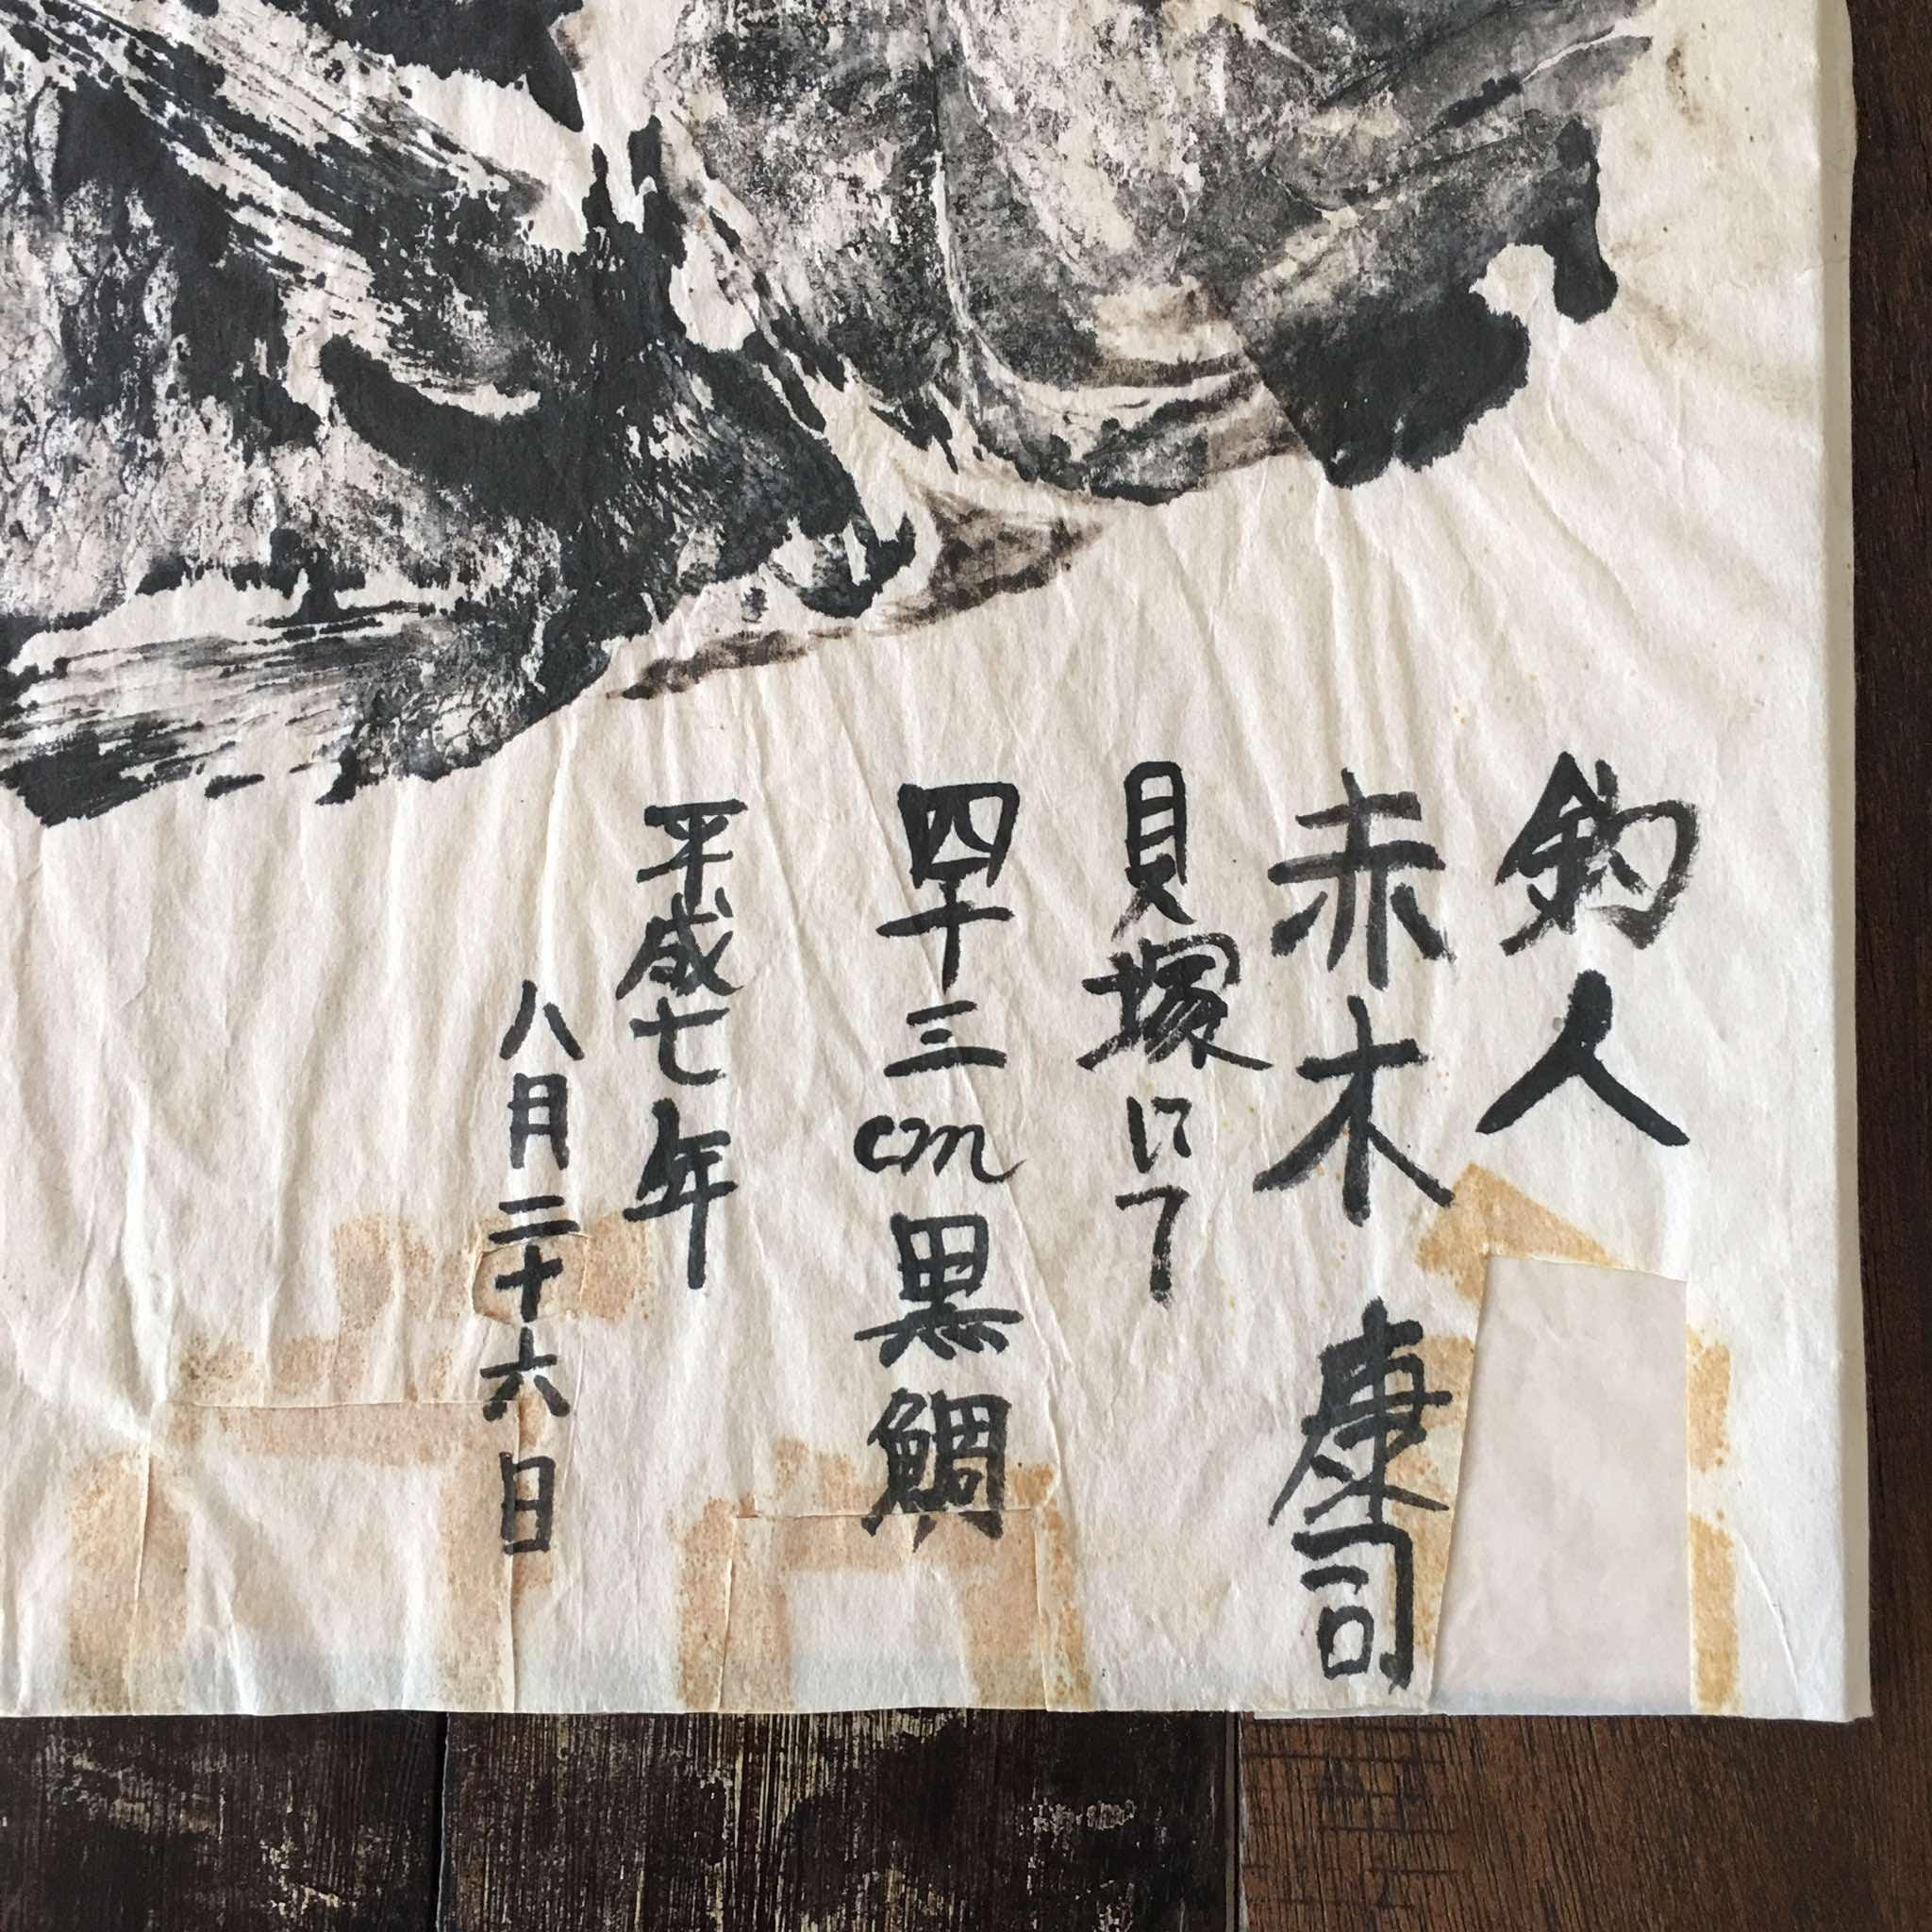 釣人
赤木 康司
貝塚にて
四十三cm黒鯛
平成七年
八月二十六日